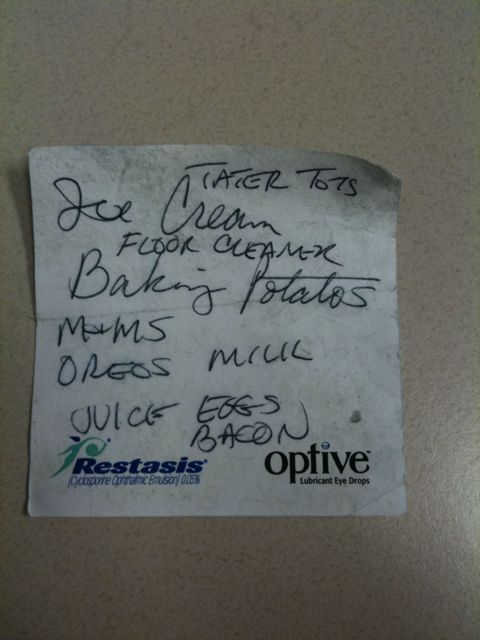 TATER TOTS
Ice Cream
FLOOR CLEANER
Baking Potatos
M+MS
OREOS MILK
JUICE EGGS
BACON
Restasis®
(Cyclosporine Ophthalmic Emulsion) 0.05%
optive™
Lubricant Eye Drops